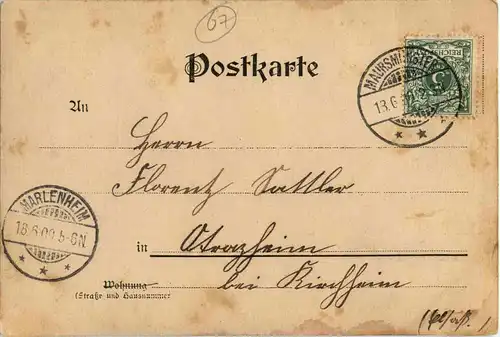 67
Postkarte
MAURSMÜNSTER
18.6.
REICHSPOST
5
An
Herrn
Florentz Sattler
MARLENHEIM
18.6.00.5-6N
in Otrazheim
Wohnung bei Kirchheim
(Straße und Hausnummer
(Elsaß.)